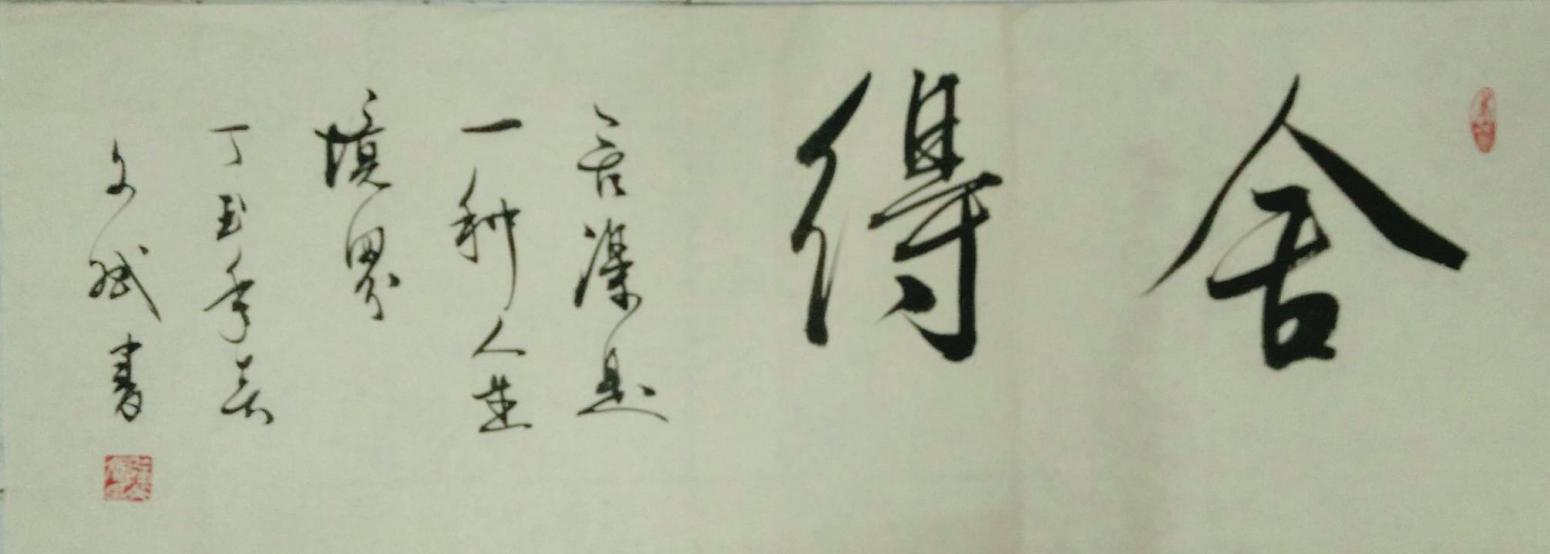 舍得
舍得是
一种人生
境界
丁酉年吴
文斌书